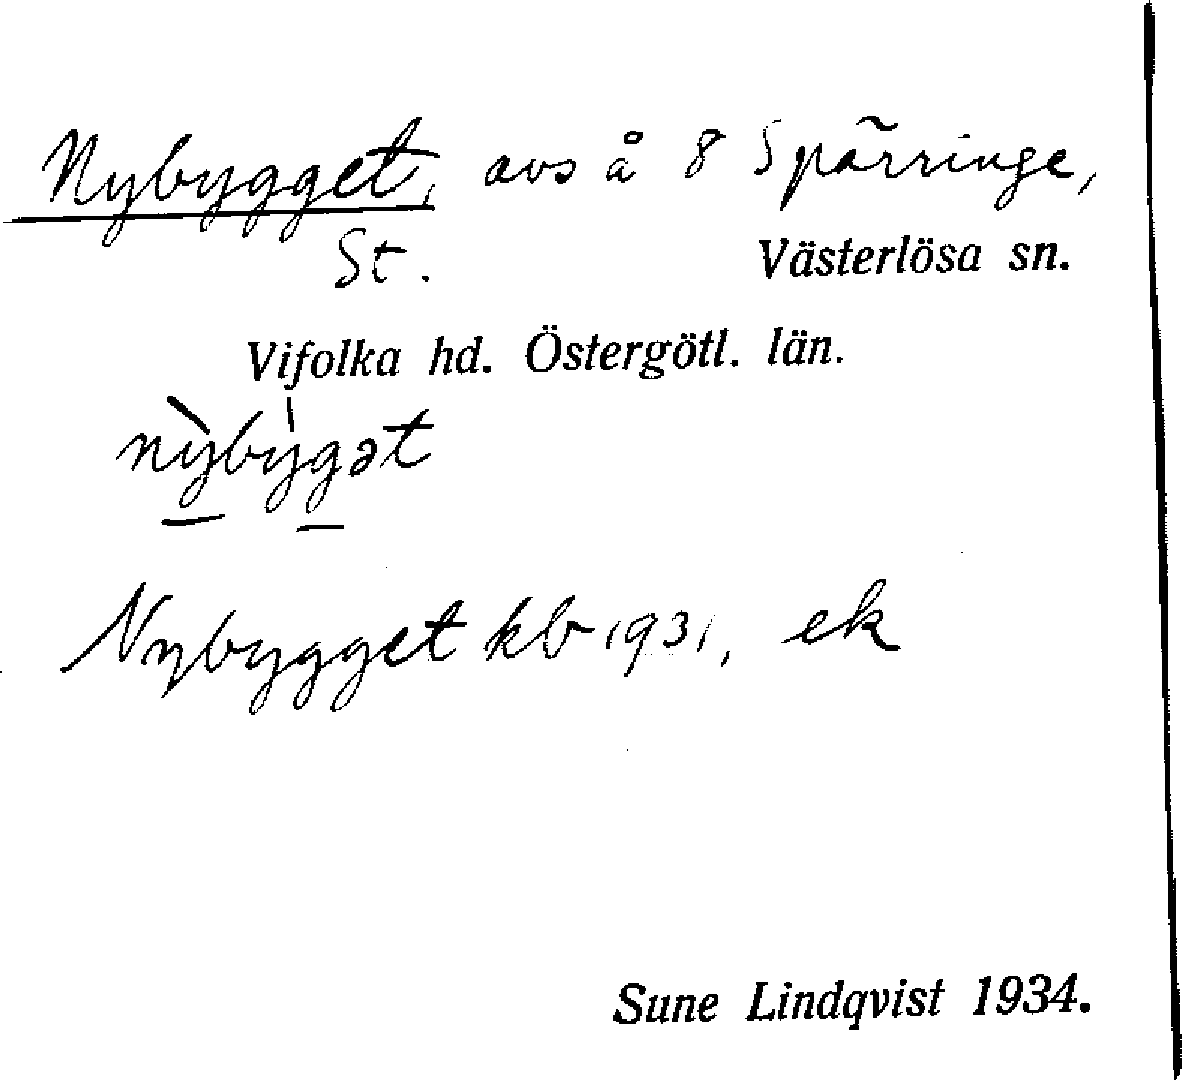 Nybygget, avs å 8 Spärringe,
St. Västerlösa sn.
Vifolka hd. Östergötl. län.
nỳbýgət
Nybygget kb 1931, ek
Sune Lindqvist 1934.